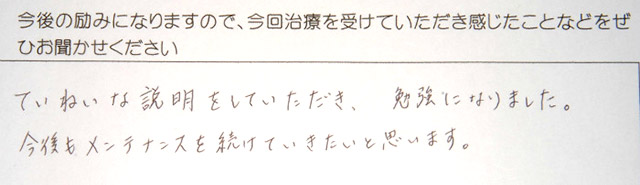 今後の励みになりますので、今回治療を受けていただき感じたことなどをぜ
ひお聞かせください
ていねいな説明をしていただき、勉強になりました。
今後もメンテナンスを続けていきたいと思います。